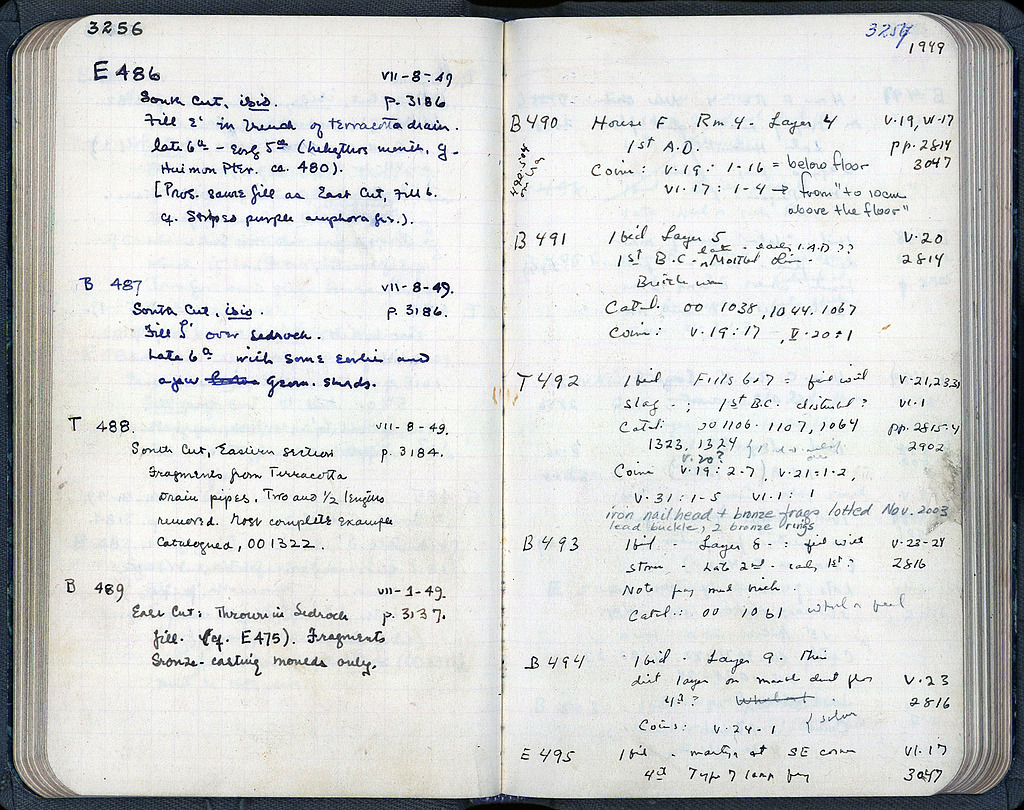 3256
E 486 VII-8-49
South Cut, ibid. p. 3186
Fill E' in trench of terracotta drain.
late 6th - early 5th (
ca. 480).
[Pros. same fill as East Cut, Fill 6.
cf. Striped purple amphora frs.).
B 487 VII-8-49.
South Cut, ibid. p. 3186.
Fill over bedrock.
Late 6th with some earlier and
a few Geom. sherds.
T 488. VII-8-49.
South Cut, Eastern section p. 3184.
Fragments from Terracotta
drain pipes. Two and ½ lengths
removed. Most complete example
Catalogued, 001322.
B 489 VII-1-49.
East Cut: Thrown in bedrock p. 3137.
fill. (cf. E475). Fragments
Bronze-casting moulds only.
3257
1949
B 490 House F Rm 4 - Layer 4 V.19, VI.17
1st A.D. pp. 2814
Coins: V.19: 1-16 = below floor 3047
VI.17: 1-4 → from "to 10cm
above the floor"
B 491 Ibid Layer 5 V.20
late - early 1. A.D ??
1st B.C - 2814
Catal. 00 1038, 1044. 1067
Coins: V.19:17 - V.20:1
T 492 Ibid Fills 6 & 7 - fill with V.21, 23,
slag - ; 1st B.C. disturbed? VI.1
Catal: 001106. 1107, 1064 pp. 2815-
1323, 1324 2902
V.20?
Coins V.19: 2-7, V.21:1-2,
V.31: 1-5 VI.1: 1
iron nail head + bronze frags lotted Nov. 2003
lead buckle, 2 bronze rings
B 493 Ibid. - Layer 8 - fill with V-23-24
stone - Late 2nd - early 1st? 2816
Note
Catal: 00 1061
B 494 Ibid - Layer 9. Thin
dirt layer on V.23
4th? 2816
Coins: V.24-1 silver
E 495 Ibid - at SE corner VI.17
4th Type 7 lamp 3047